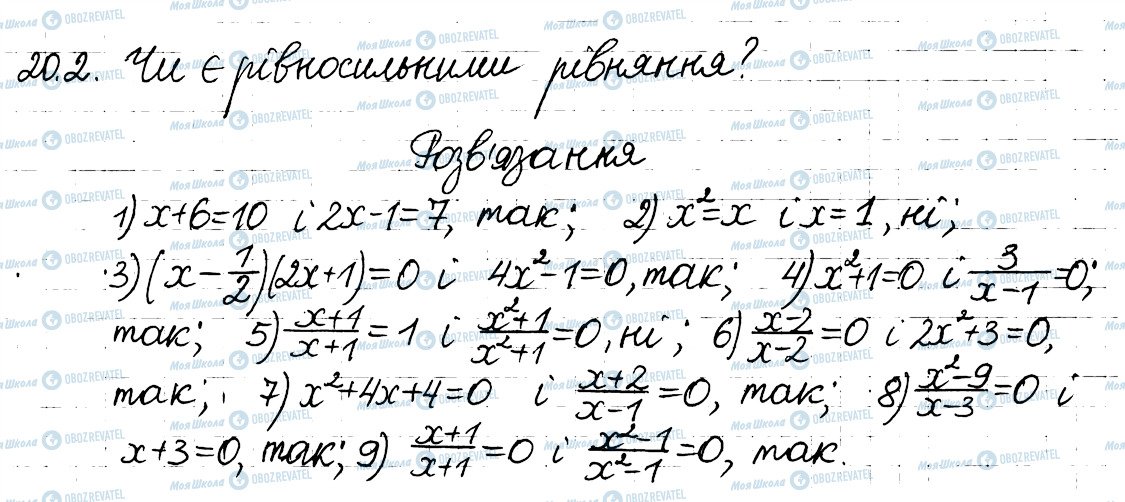 20.2. Чи є рівносильними рівняння?
Розв'язання
1) x+6=10 і 2x-1=7, так; 2) x²=x і x=1, ні;
3) (x - 1/2)(2x+1)=0 і 4x²-1=0, так; 4) x²+1=0 і 3/(x-1)=0;
так; 5) (x+1)/(x+1)=1 і (x²+1)/(x²+1)=0, ні; 6) (x-2)/(x-2)=0 і 2x²+3=0,
так; 7) x²+4x+4=0 і (x+2)/(x-1)=0, так; 8) (x²-9)/(x-3)=0 і
x+3=0, так; 9) (x+1)/(x+1)=0 і (x²-1)/(x²-1)=0, так.